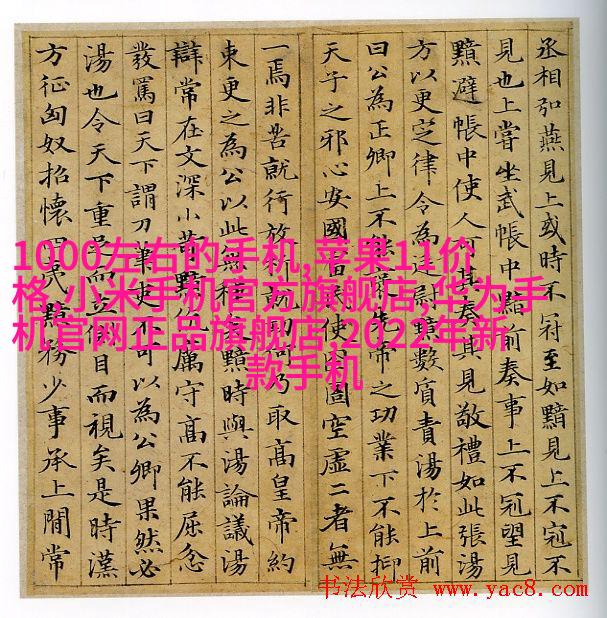 丞相弘燕見上或時不冠至如黯見上不冠不
見也上嘗坐武帳中黯前奏事上不冠望見
黯避帳中使人可其奏其見敬禮如此張湯
方以更定律令為廷尉黯數質責湯於上前
曰公為正卿上不能先帝之功業下不能抑
天子之邪心安國富使囹圄空虛二者無
一焉非苦就行放功何乃取高皇帝約
束更之為公以此無種矣黯時與湯論議湯
辯常在文深小苛黯伉厲守高不能屈忿
發罵曰天下謂刀筆吏不可以為公卿果然必
湯也令天下重足而立側目而視矣是時漢
方征匈奴招懷夷黯務少事承上間常
1000左右的手机,苹果11价
格,小米手机官方旗舰店,华为手
机官网正品旗舰店,2022年新
款手机
书法欣赏 www.yac8.com